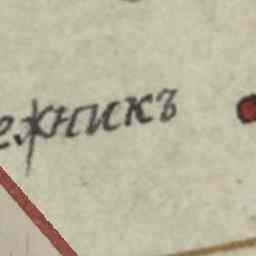 ежникъ